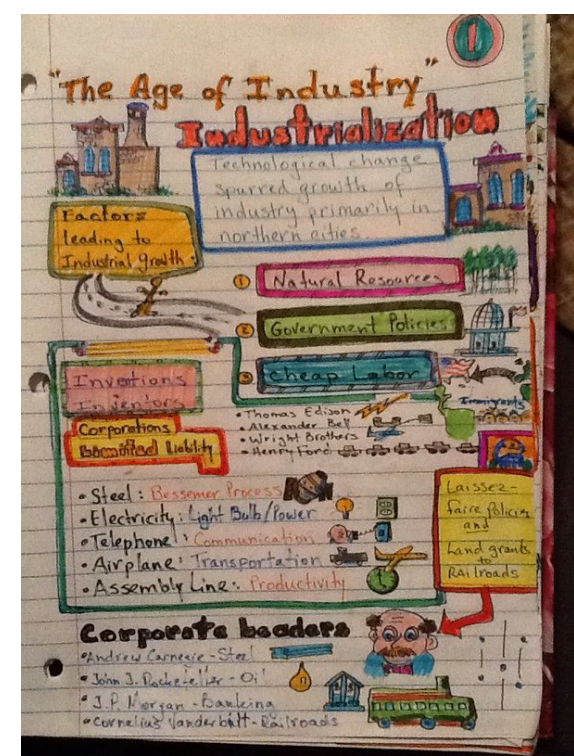 1
"The Age of Industry"
Industrialization
Technological change
spurred growth of
industry primarily in
northern cities
Factors
leading to
Industrial Growth:
① Natural Resources
② Government Policies
③ Cheap Labor
Immigrants
Inventions
Inventors
• Thomas Edison
• Alexander Bell
• Wright Brothers
• Henry Ford
Corporations
Liability
• Steel: Bessemer Process
• Electricity: Light Bulb/Power
• Telephone: Communication
• Airplane: Transportation
• Assembly Line: Productivity
Laissez-
faire Policies
and
Land grants
to
RAilroads
Corporate Leaders
• Andrew Carnegie - Steel
• John J. Rockefeller - Oil
• J.P. Morgan - Banking
• Cornelius Vanderbilt - Railroads